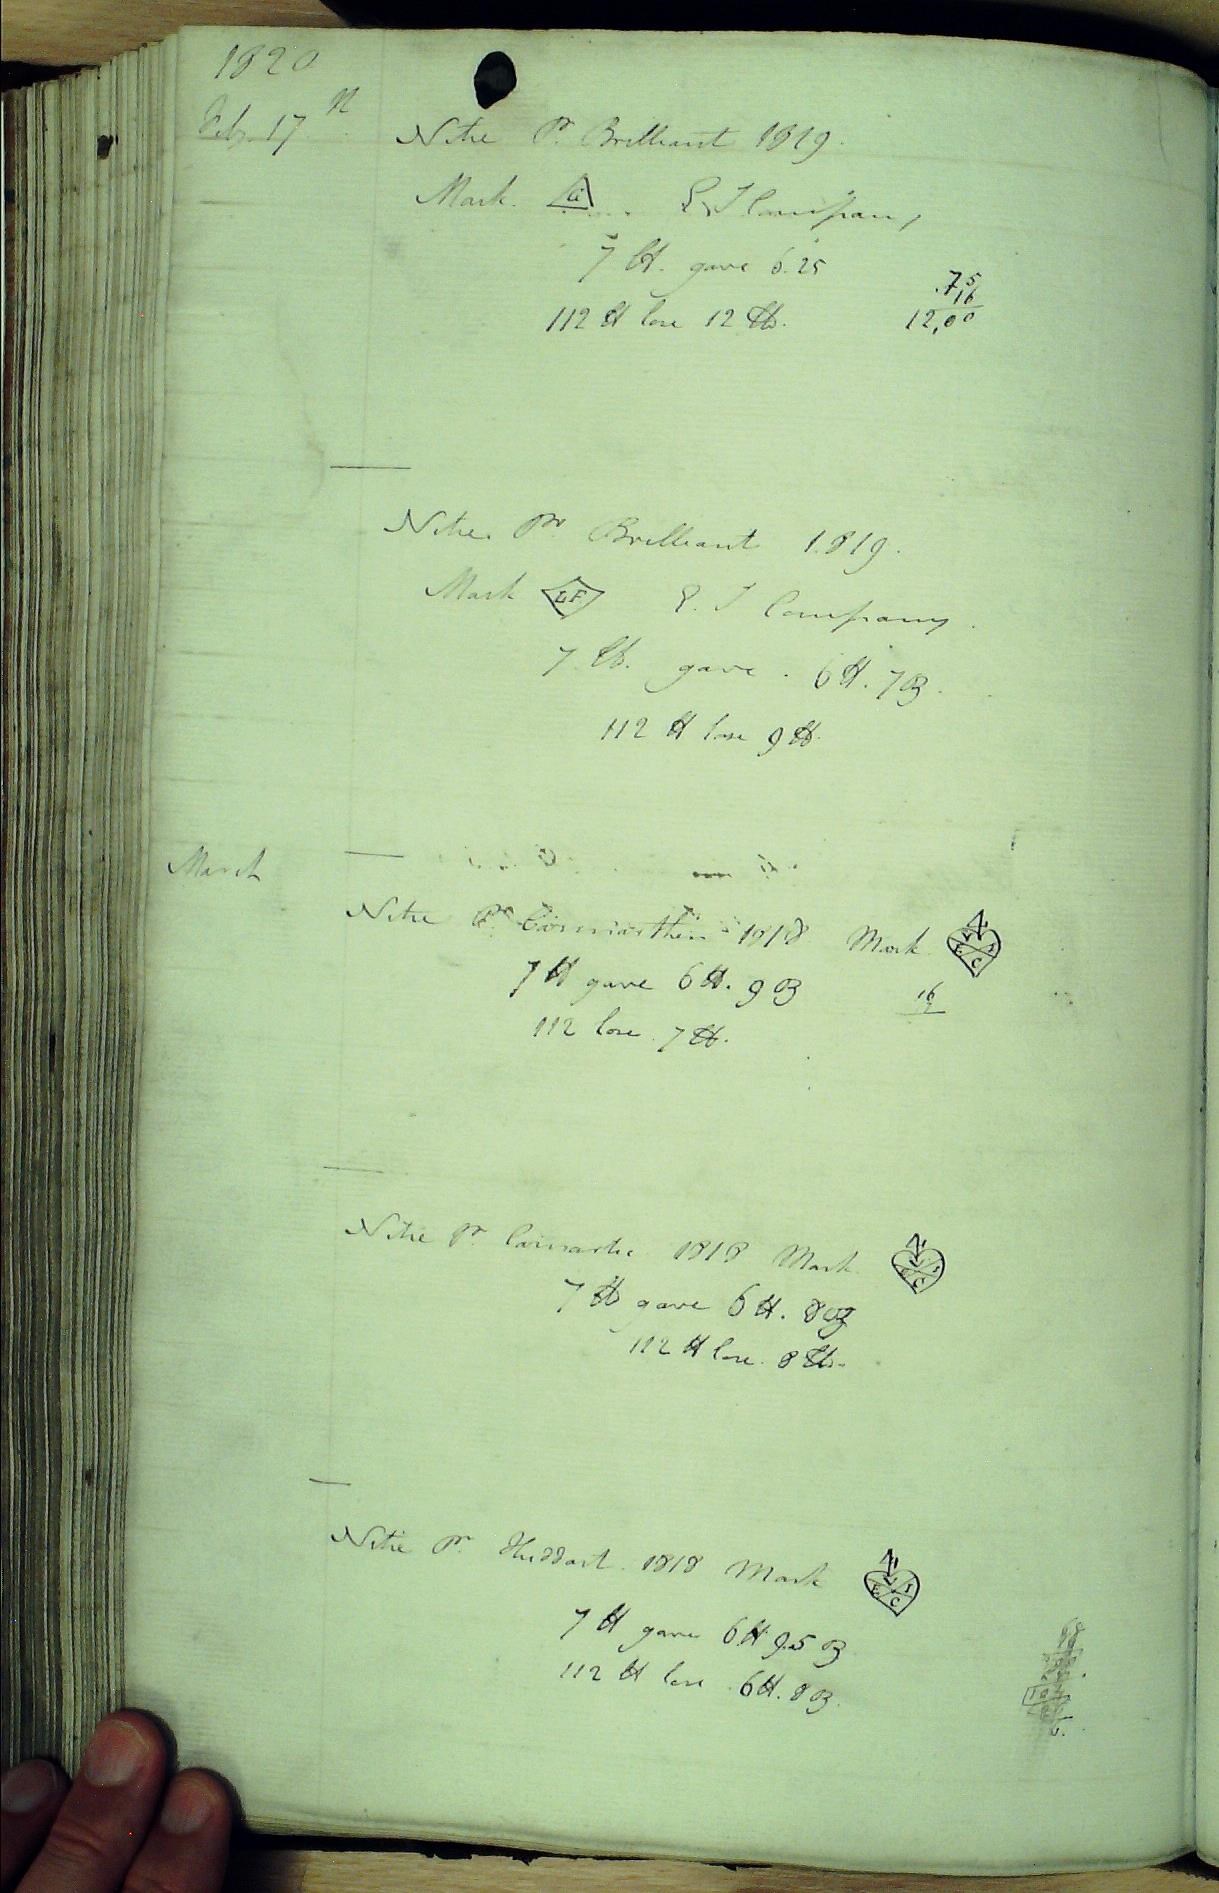 1820
Feb. 17th
Nitre Pr. Brilliant 1819.
Mark. G E I Company
7 lb. gave 6.25
.75
16
112 lb lose 12 lb. 12,00
Nitre Pr. Brilliant 1819.
Mark LF E. I Company.
7 lb. gave. 6 lb. 7 oz.
112 lb lose 9 lb.
March
Nitre Pr. Carmarthen 1818 Mark N V E I C
7 lb gave 6 lb. 9 oz
16
7
112 lose 7 lb.
Nitre Pr. 1818 Mark N V E I C
7 lb gave 6 lb. 8 oz
112 lb lose. 8 lb.
Nitre Pr. Huddart. 1818 Mark N V E I C
7 lb gave 6 lb 9.5 oz
112 lb lose 6 lb. 8 oz.